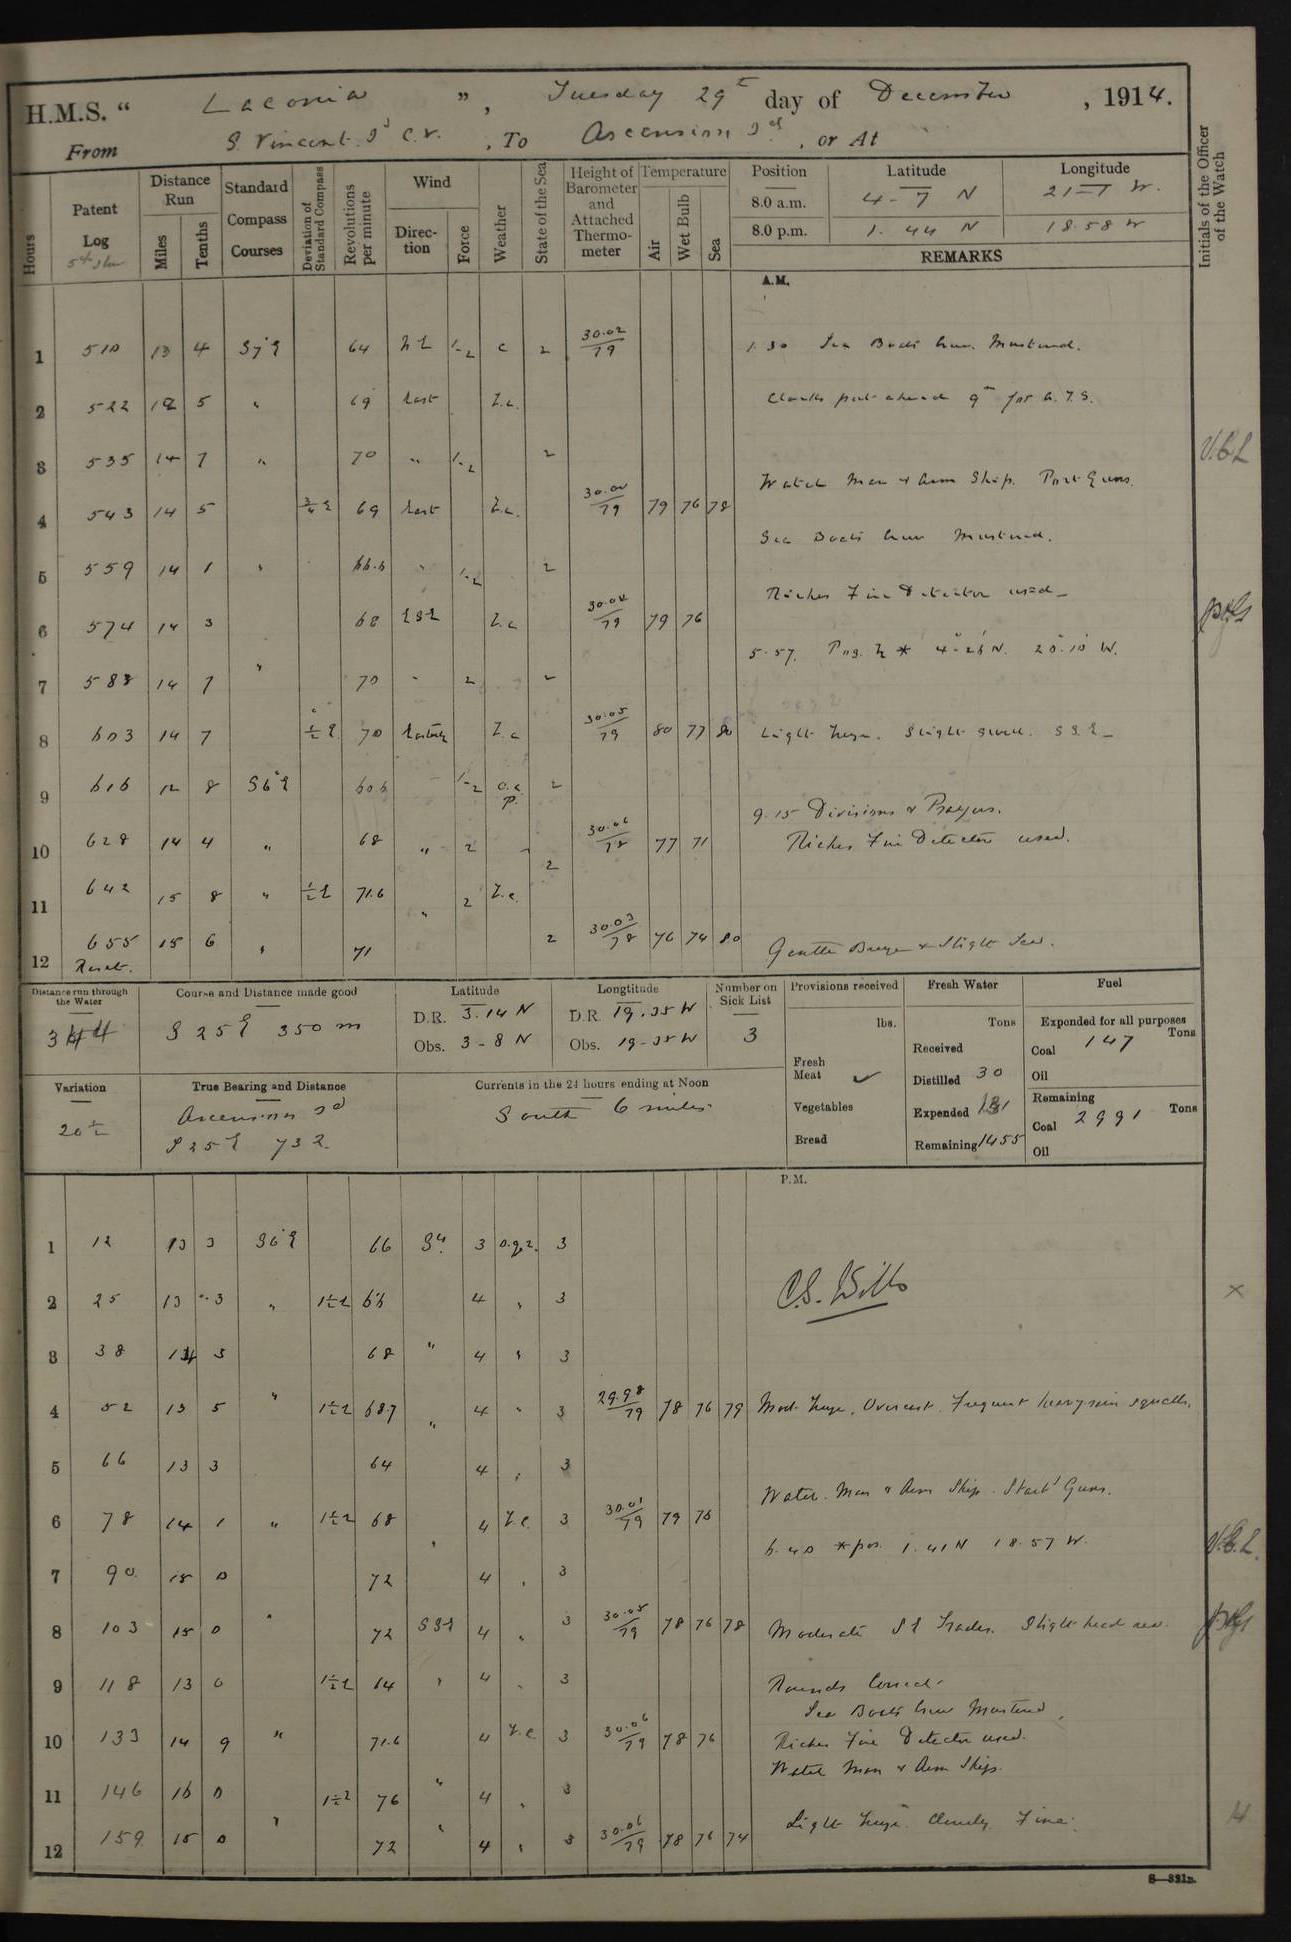 H.M.S. " Laconia ", Tuesday 29th day of December, 1914.
From S. Vincent Id C.V., To Ascension Id, or At
Hours
Patent Log
Distance Run
Miles
Tenths
Standard Compass Courses
Deviation of Standard Compass
Revolutions per minute
Wind
Direction
Force
Weather
State of the Sea
Height of Barometer and Attached Thermometer
Temperature
Air
Wet Bulb
Sea
Position Latitude Longitude
8.0 a.m. 4-7 N 21-1 W.
8.0 p.m. 1.44 N 18.58 W
REMARKS
Initials of the Officer of the Watch
A.M.
1 510 13 4 S7°E 64 NE 1-2 c 2 30.02/79 1.30 Sea Boats Crew Mustered.
2 522 12 5 " 69 East Z.c. Clocks put ahead 9m for A.T.S.
3 535 14 7 " 70 " 1-2 2 V.B.L
4 543 14 5 3/4 E 69 East Z.c. 30.00/79 79 76 78 Watch Man & Arm Ship. Port Guns.
Sea Boats Crew Mustered.
5 559 14 1 " 66.6 " 1-2 2
Riches Fire Detector used_
6 574 14 3 68 ESE Z.c 30.04/79 79 76
5.57. Pos. by * 4°-26'N. 20°.10' W.
7 588 14 7 " 70 " 2 2
8 603 14 7 1/2 E 70 Easterly Z.c 30.05/79 80 77 80 Light breeze. Slight swell. SSE_
9 616 12 8 S6°E 60.6 1-2 o.c p. 2 9.15 Divisions & Prayers.
10 628 14 4 " 68 " 2 2 30.06/78 77 71 Riches Fire Detector used.
11 642 15 8 " 1/2 E 71.6 " 2 Z.c.
12 655 15 6 " 71 2 30.03/78 76 74 80 Gentle Breeze & Slight Sea.
Reset.
Distance run through the Water
344
Course and Distance made good
S 25 E 350 m
Latitude
D.R. 3.14 N
Obs. 3-8 N
Longtitude
D.R. 19.35 W
Obs. 19-35 W
Number on Sick List
3
Provisions received
lbs.
Fresh Meat ✓
Vegetables
Bread
Fresh Water
Tons
Received
Distilled 30
Expended 131
Remaining 1455
Fuel
Expended for all purposes
Tons
Coal 147
Oil
Remaining
Coal 2991 Tons
Oil
Variation
20 1/2
True Bearing and Distance
Ascension Id
S 25 E 732
Currents in the 24 hours ending at Noon
South 6 miles
P.M.
1 12 13 3 S6°E 66 Sly 3 o.q.r. 3
2 25 13 3 " 1 1/2 E 66 4 " 3 C.S. Wills
3 38 13 3 68 " 4 " 3
4 52 13 5 " 1 1/2 E 68.7 " 4 " 3 29.98/79 78 76 79 Mod. breeze, Overcast. Frequent heavy rain squalls.
5 66 13 3 64 4 " 3
Watch. Man & Arm Ship. Starbd Guns.
6 78 14 1 " 1 1/2 E 68 " 4 Z.c. 3 30.01/79 79 76
6.40 * pos. 1.41 N 18.57 W. V.B.L.
7 90 15 0 72 4 " 3
8 103 15 0 " 72 SSE 4 " 3 30.05/79 78 76 78 Moderate SE Trades. Slight head sea.
9 118 13 0 1 1/2 E 64 " 4 " 3 Rounds Correct.
Sea Boats Crew Mustered,
10 133 14 9 " 71.6 4 Z.c 3 30.06/79 78 76 Riches Fire Detector used.
Watch Man & Arm Ships.
11 146 16 0 1 1/2 E 76 " 4 " 3
12 159 15 0 " 72 " 4 " 3 30.06/79 78 76 74 Light breeze. Cloudy. Fine.
S—321B.